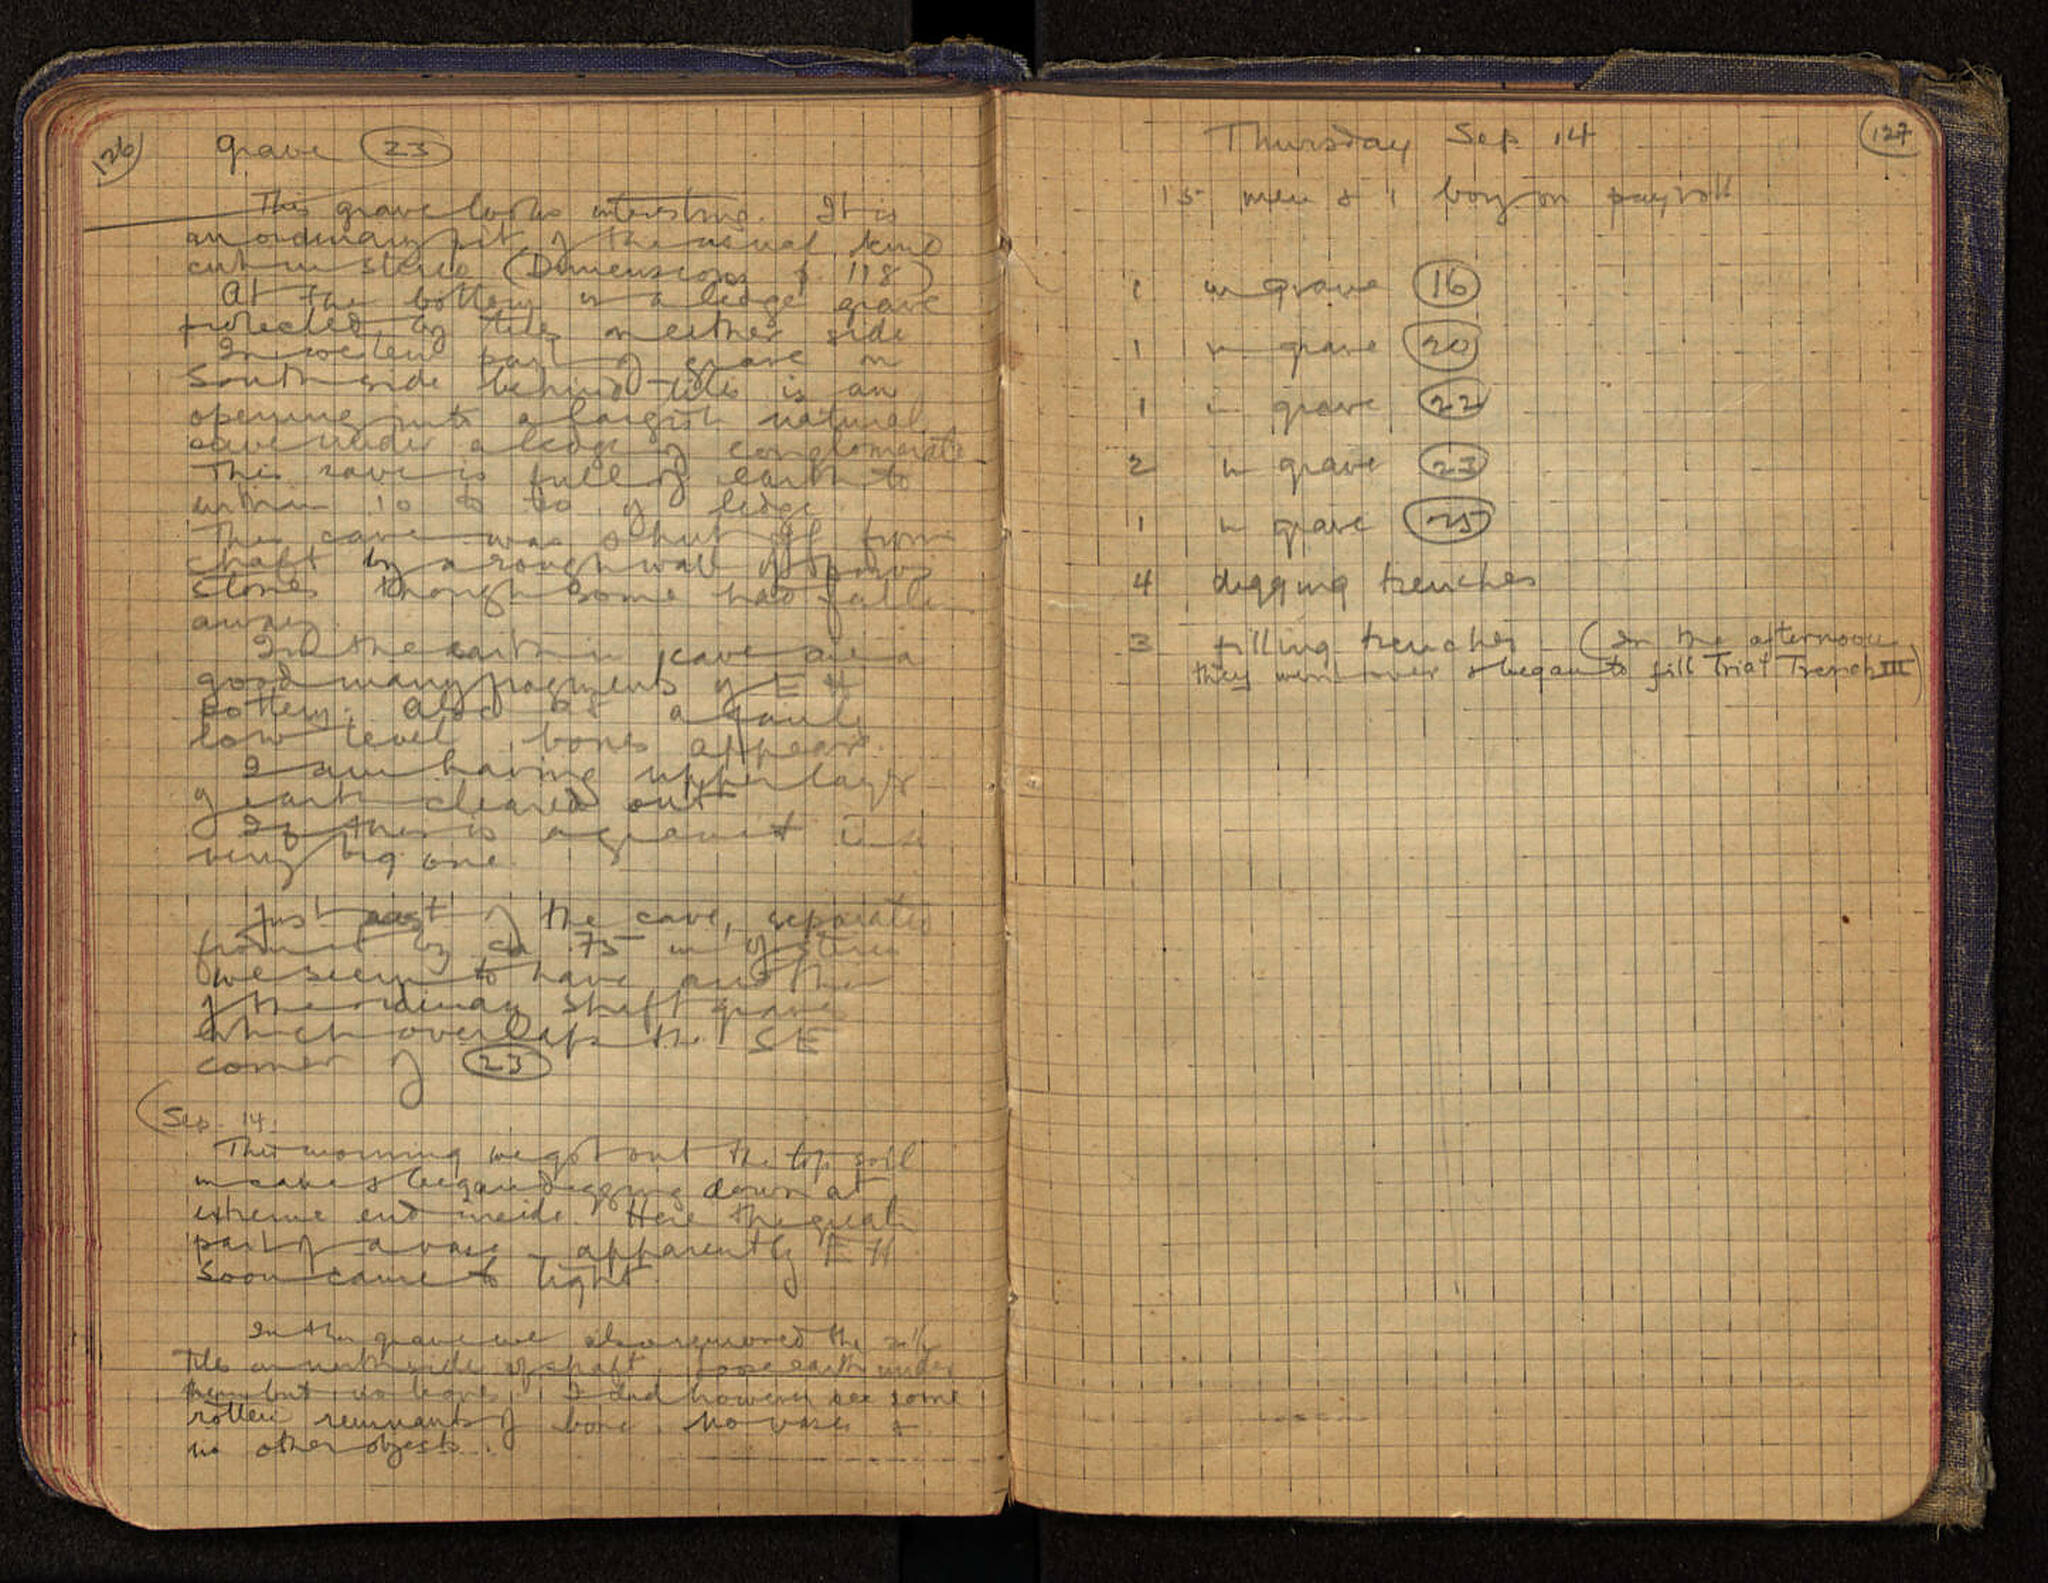 126
Grave 23
This grave looks interesting. It is
an ordinary pit of the usual kind
cut in stereo (Dimensions p. 118)
At the bottom is a ledge grave
protected by tiles on either side
In western part of grave on
South side behind tiles is an
opening into a largish natural
cave under a ledge of conglomerate
This cave is full of earth to
within 10 to 20 of ledge
This cave was shut off from
shaft by a rough wall of poros
stones though some had fallen
away.
In the earth in cave are a
good many fragments of EH
pottery. Also at a fairly
low level bones appear.
I am having upper layer
of earth cleared out
If this is a grave it is a
very big one.
Just east of the cave, separated
from it by ca .75 m of stereo
we seem to have another
of the ordinary shaft graves
which overlaps the SE
corner of 23
(Sep. 14.
This morning we got out the top soil
in cave & began digging down at
extreme end inside. Here the greater
part of a vase - apparently EH
soon came to light.
In this grave we also removed the
tiles on north side of shaft. Loose earth under
them but no legs. I did however see some
rotten remnants of bone. No vases &
no other objects.
127
Thursday Sep 14
15 men & 1 boy on payroll
1 in grave 16
1 in grave 20
1 in grave 22
2 in grave 23
1 in grave 25
4 digging trenches
3 filling trenches - (In the afternoon
they went over & began to fill Trial Trench III)